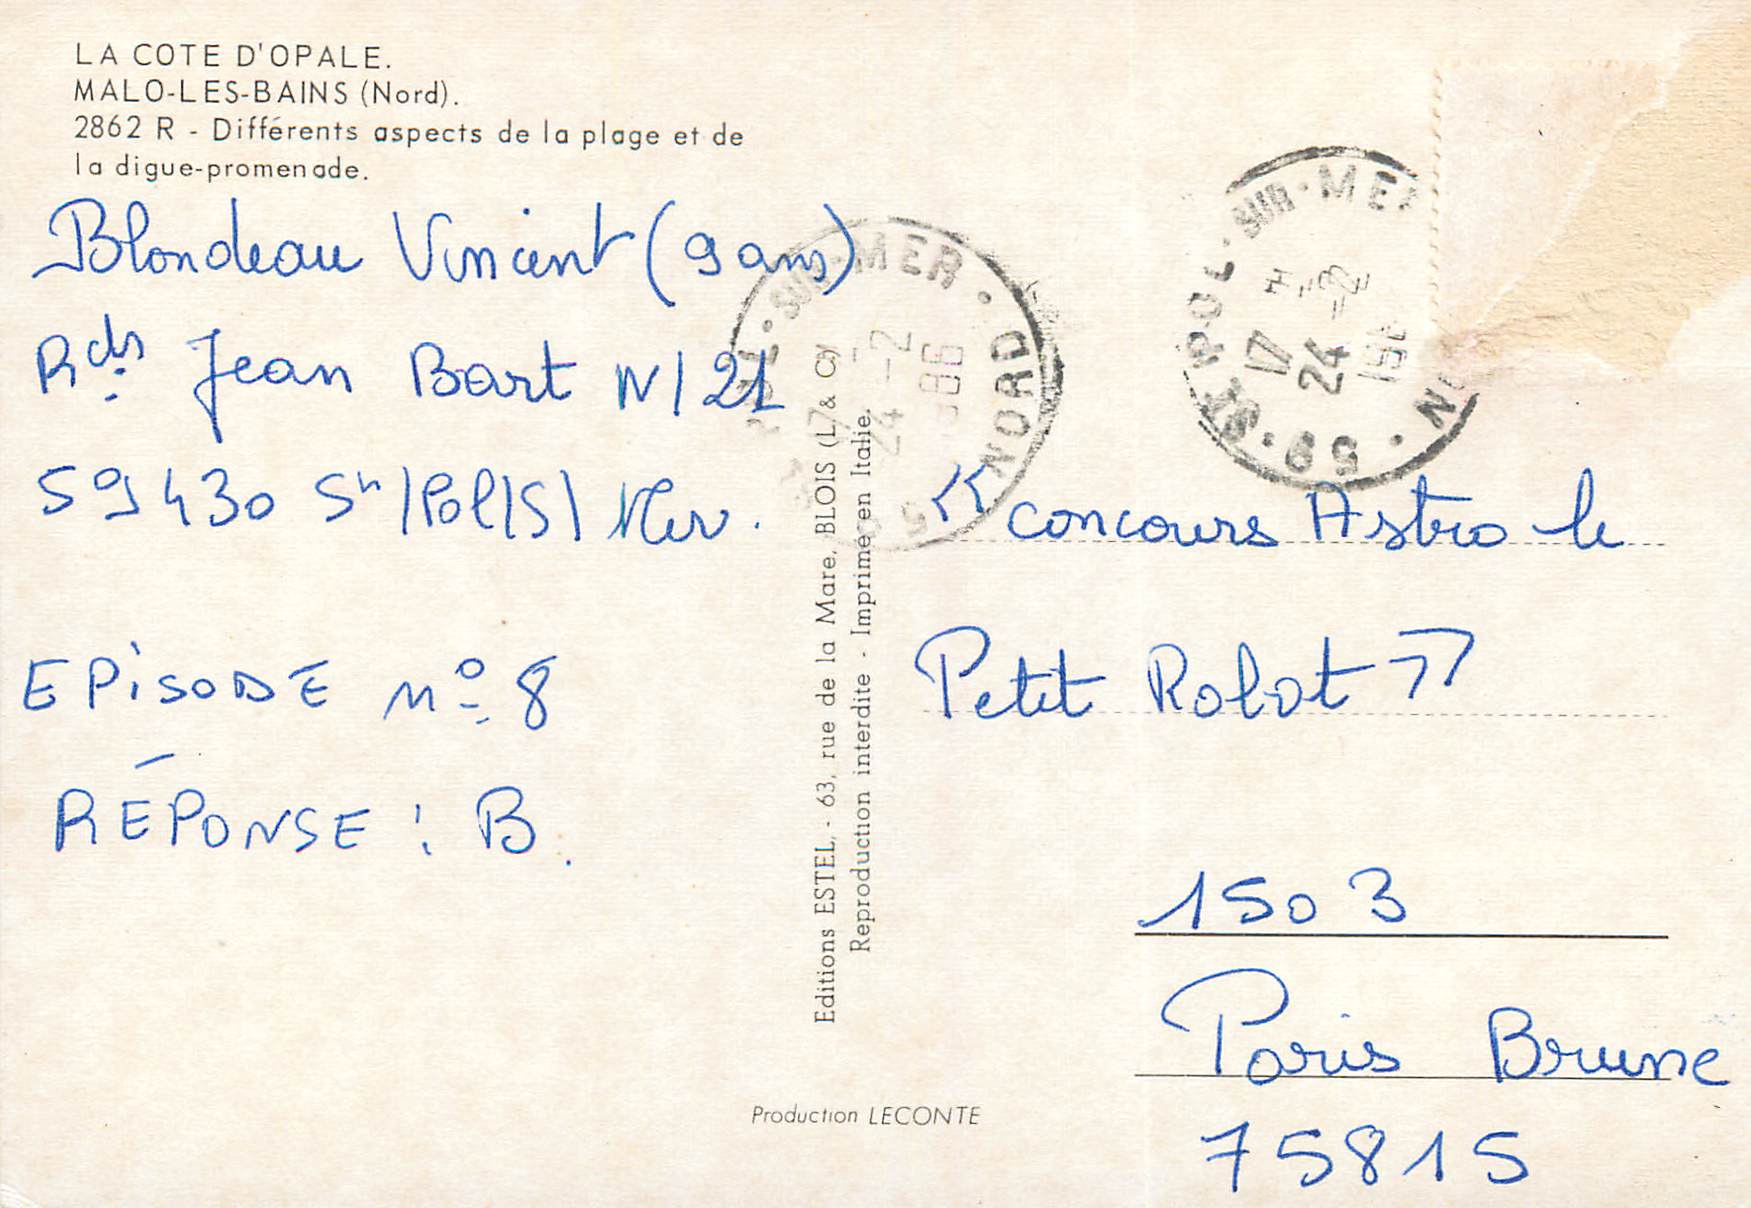 LA COTE D'OPALE.
MALO-LES-BAINS (Nord).
2862 R - Différents aspects de la plage et de
la digue-promenade.
Blondeau Vincent (9 ans)
Rds Jean Bart N/21
59430 St/Pol/S/Mer.
EPiSODE no 8
RÉPONSE : B.
Editions ESTEL, - 63, rue de la Mare, BLOIS (L. & C.)
Reproduction interdite - Imprimé en Italie.
Production LECONTE
SUR·MER · NORD
17
24 -2
1986
59 · ST POL · SUR · MER
17 H
24 -2
« concours Astro le
Petit Robot »
1503
Paris Brune
75815